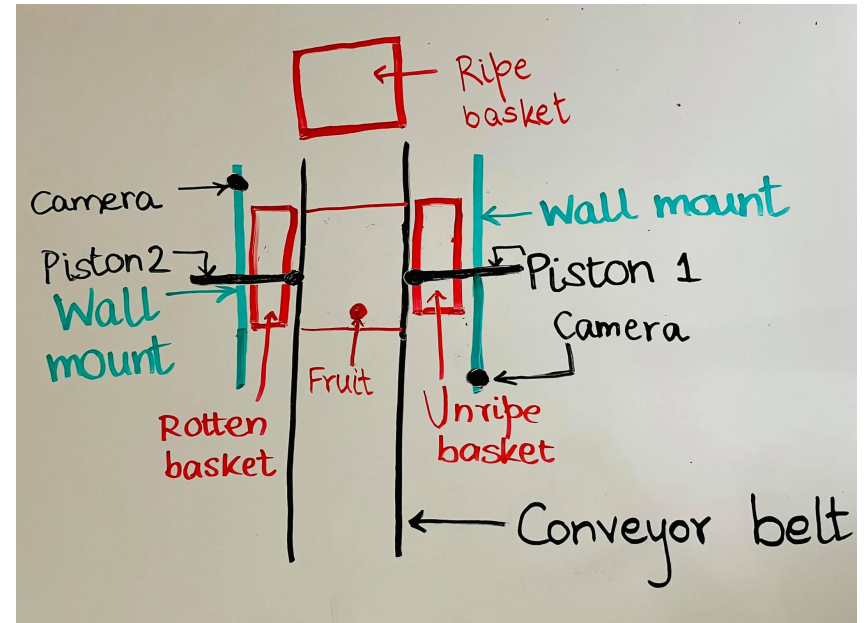 Ripe
basket
Camera
Wall mount
Piston 2
Piston 1
Wall
mount
Camera
Fruit
Rotten
basket
Unripe
basket
Conveyor belt